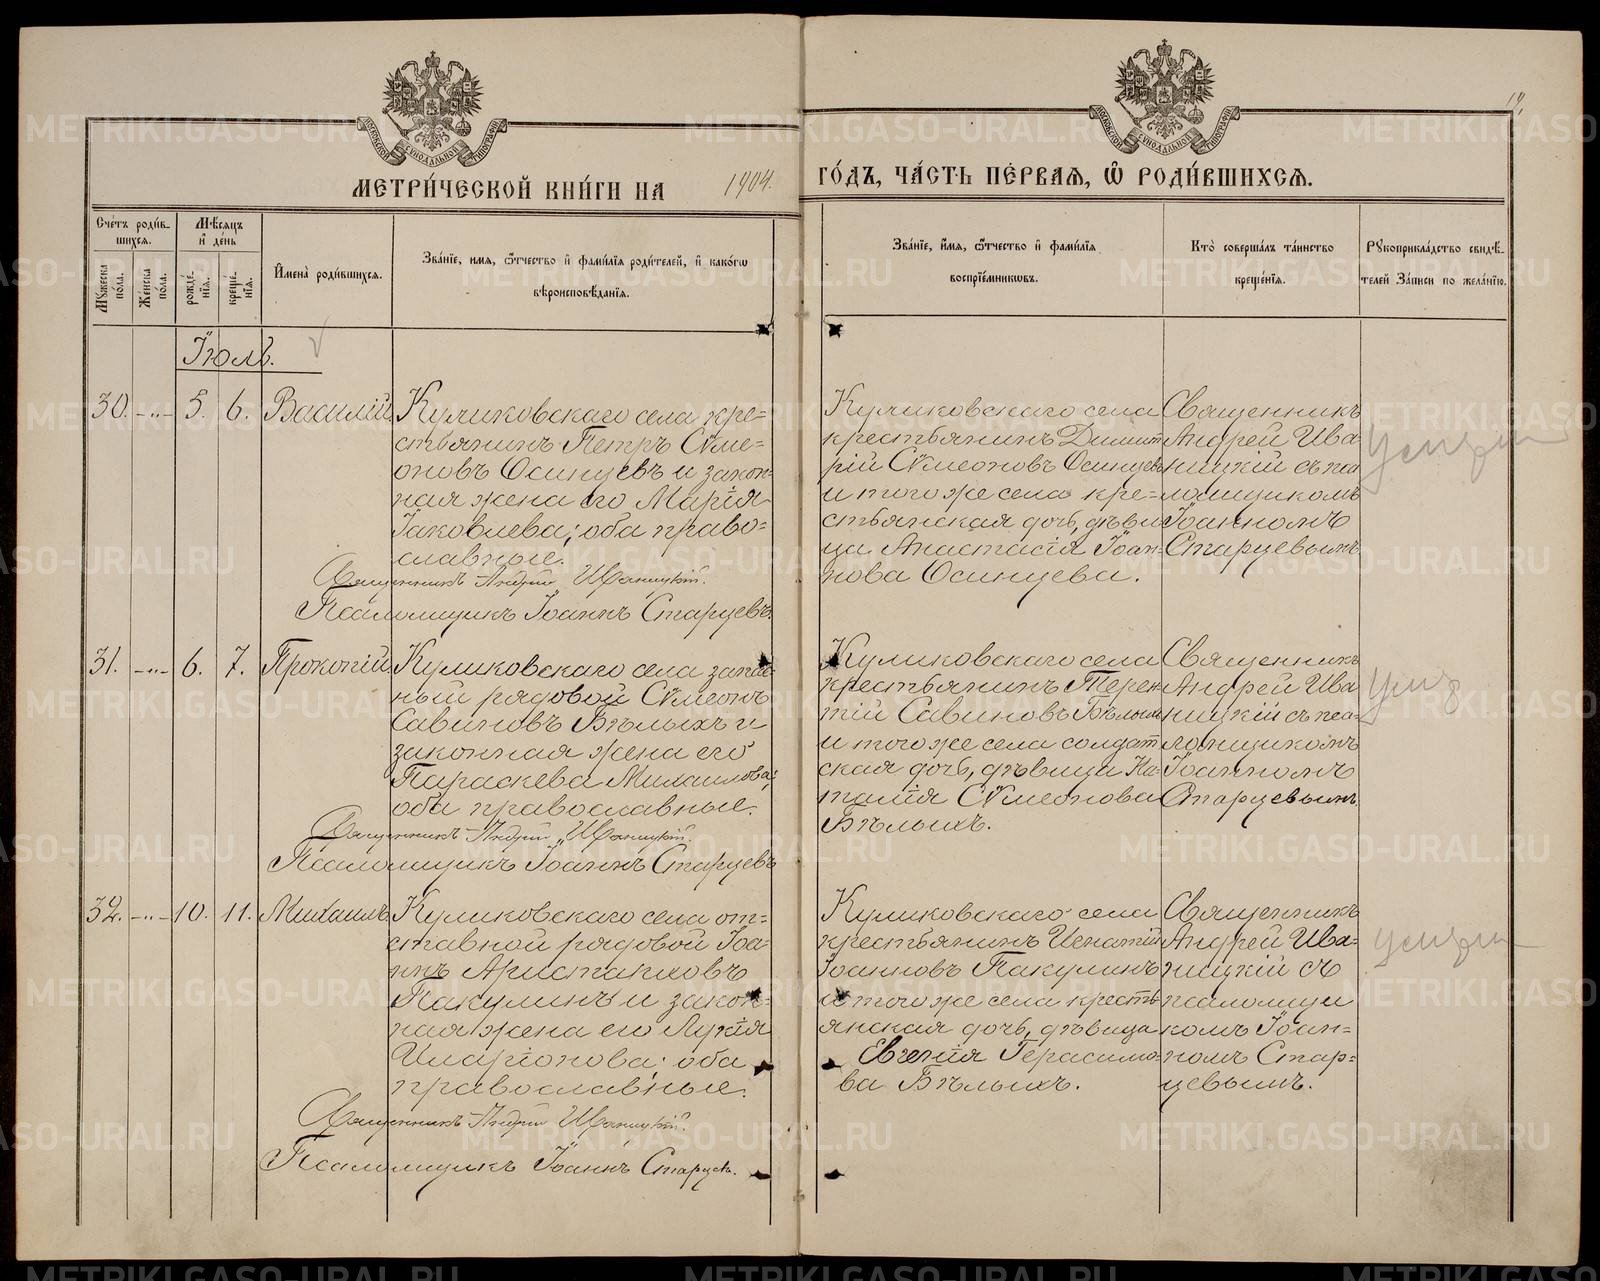 12
МОСКОВСКОЙ СѴНОДАЛЬНОЙ ТИПОГРАФІИ
МОСКОВСКОЙ СѴНОДАЛЬНОЙ ТИПОГРАФІИ
МЕТРИ́ЧЕСКОЙ КНИ́ГИ НА 1904.
ГО́ДЪ, ЧА́СТЬ ПЕ́РВАѦ, Ѽ РОДИ́ВШИХСѦ.
Сче́тъ роди́в-
шихсѧ.
Мѣ́сѧцъ
и҆ де́нь
Мꙋ́жеска по́ла.
Же́нска по́ла.
рожде́-
нїѧ.
креще́-
нїѧ.
И҆мена̀ роди́вшихсѧ.
Зва́нїе, и҆мѧ, ѻ҆́тчество и҆ фами́лїѧ роди́телей, и҆ како́гѡ
вѣроисповѣ́данїѧ.
Зва́нїе, и҆́мѧ, ѻ҆́тчество и҆ фами́лїѧ
воспрїе́мникѡвъ.
Кто̀ соверша́лъ та́инство
креще́нїѧ.
Рꙋкоприкла́дство свидѣ́-
телей за́писи по жела́нїю.
Іюль.
30. -"- 5. 6. Василій.
Куликовскаго села кре=
стьянинъ Петръ Сѵме=
оновъ Осинцевъ и закон-
ная жена его Марія
Іаковлева; оба право=
славные.
Священникъ Андрей Иваницкій.
Псаломщикъ Іоаннъ Старцевъ.
Куликовскаго села
крестьянинъ Димит
рій Сѵмеоновъ Осинцевъ
и того же села кре=
стьянская дочь, дѣви
ца Анастасія Іоан-
нова Осинцева.
Священникъ
Андрей Ива
ницкій съ пса
ломщикомъ
Іоанномъ
Старцевымъ
31. -"- 6. 7. Прокопій.
Куликовскаго села запас
ный рядовой Сѵмеонъ
Савиновъ Бѣлыхъ и
законная жена его
Параскева Михаилова;
оба православные.
Священникъ Андрей Иваницкій.
Псаломщикъ Іоаннъ Старцевъ
Куликовскаго села
крестьянинъ Терен
тій Савиновъ Бѣлыхъ
и того же села солдат
ская дочь, дѣвица На-
талія Сѵмеонова
Бѣлыхъ.
Священникъ
Андрей Ива
ницкій съ пса-
ломщикомъ
Іоанномъ
Старцевымъ.
32. -"- 10. 11. Михаилъ
Куликовскаго села от=
ставной рядовой Іоа-
ннъ Аристакховъ
Пакулинъ и закон-
ная жена его Лукія
Иларіонова; оба
православные.
Священникъ Андрей Иваницкій.
Псаломщикъ Іоаннъ Старцевъ.
Куликовскаго села
крестьянинъ Игнатій
Іоанновъ Пакулинъ
и того же села кресть
янская дочь, дѣвица
Евгенія Герасимо
ва Бѣлыхъ.
Священникъ
Андрей Ива-
ницкій съ
псаломщи
комъ Іоан=
номъ Стар=
цевымъ.